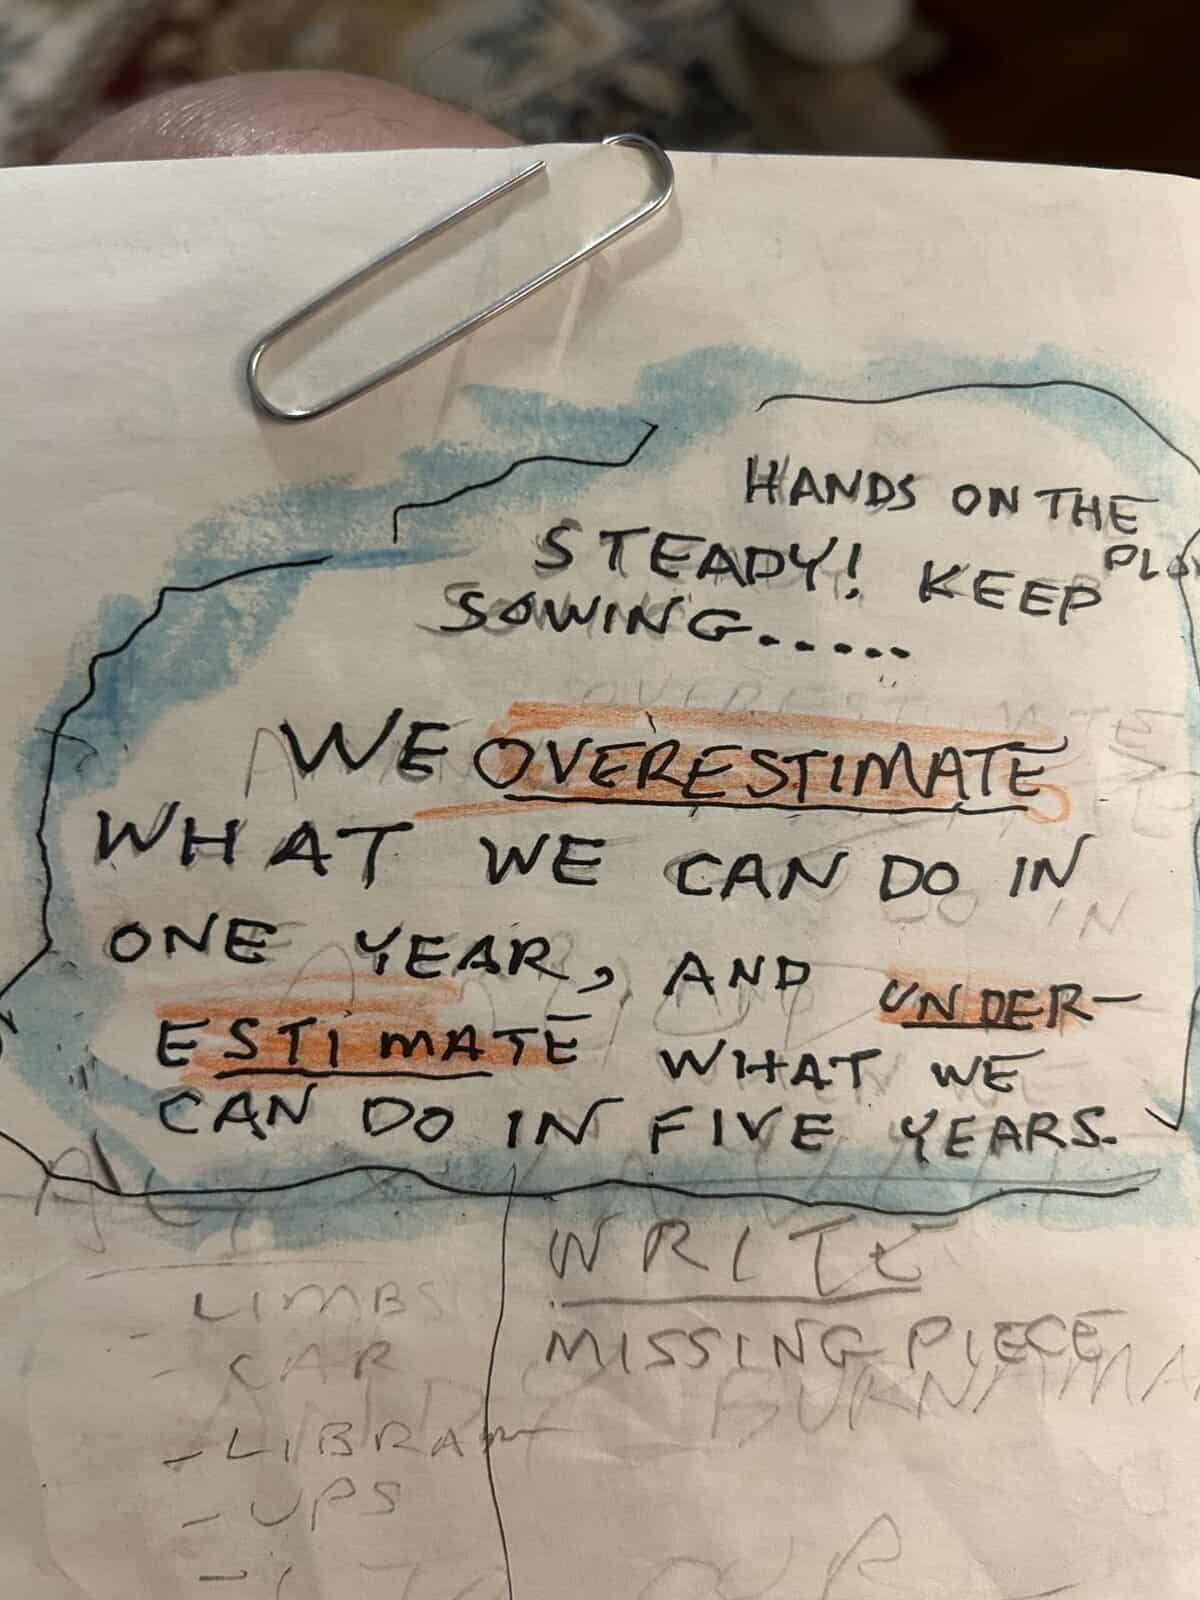 HANDS ON THE
PLOW
STEADY! KEEP
SOWING.....
WE OVERESTIMATE
WHAT WE CAN DO IN
ONE YEAR, AND UNDER-
ESTIMATE WHAT WE
CAN DO IN FIVE YEARS.
- LIMBS
- CAR
- LIBRARY
- UPS
WRITE
MISSING PIECE